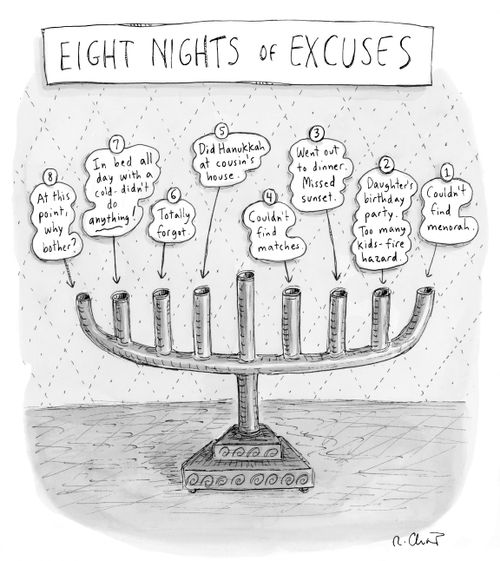 EIGHT NIGHTS OF EXCUSES
8
At this
point,
why
bother?
7
In bed all
day with a
cold- didn't
do
anything!
6
Totally
forgot.
5
Did Hanukkah
at cousin's
house.
4
Couldn't
find
matches
3
Went out
to dinner.
Missed
sunset.
2
Daughter's
birthday
party.
Too many
kids-fire
hazard.
1
Couldn't
find
menorah.
R. Chast